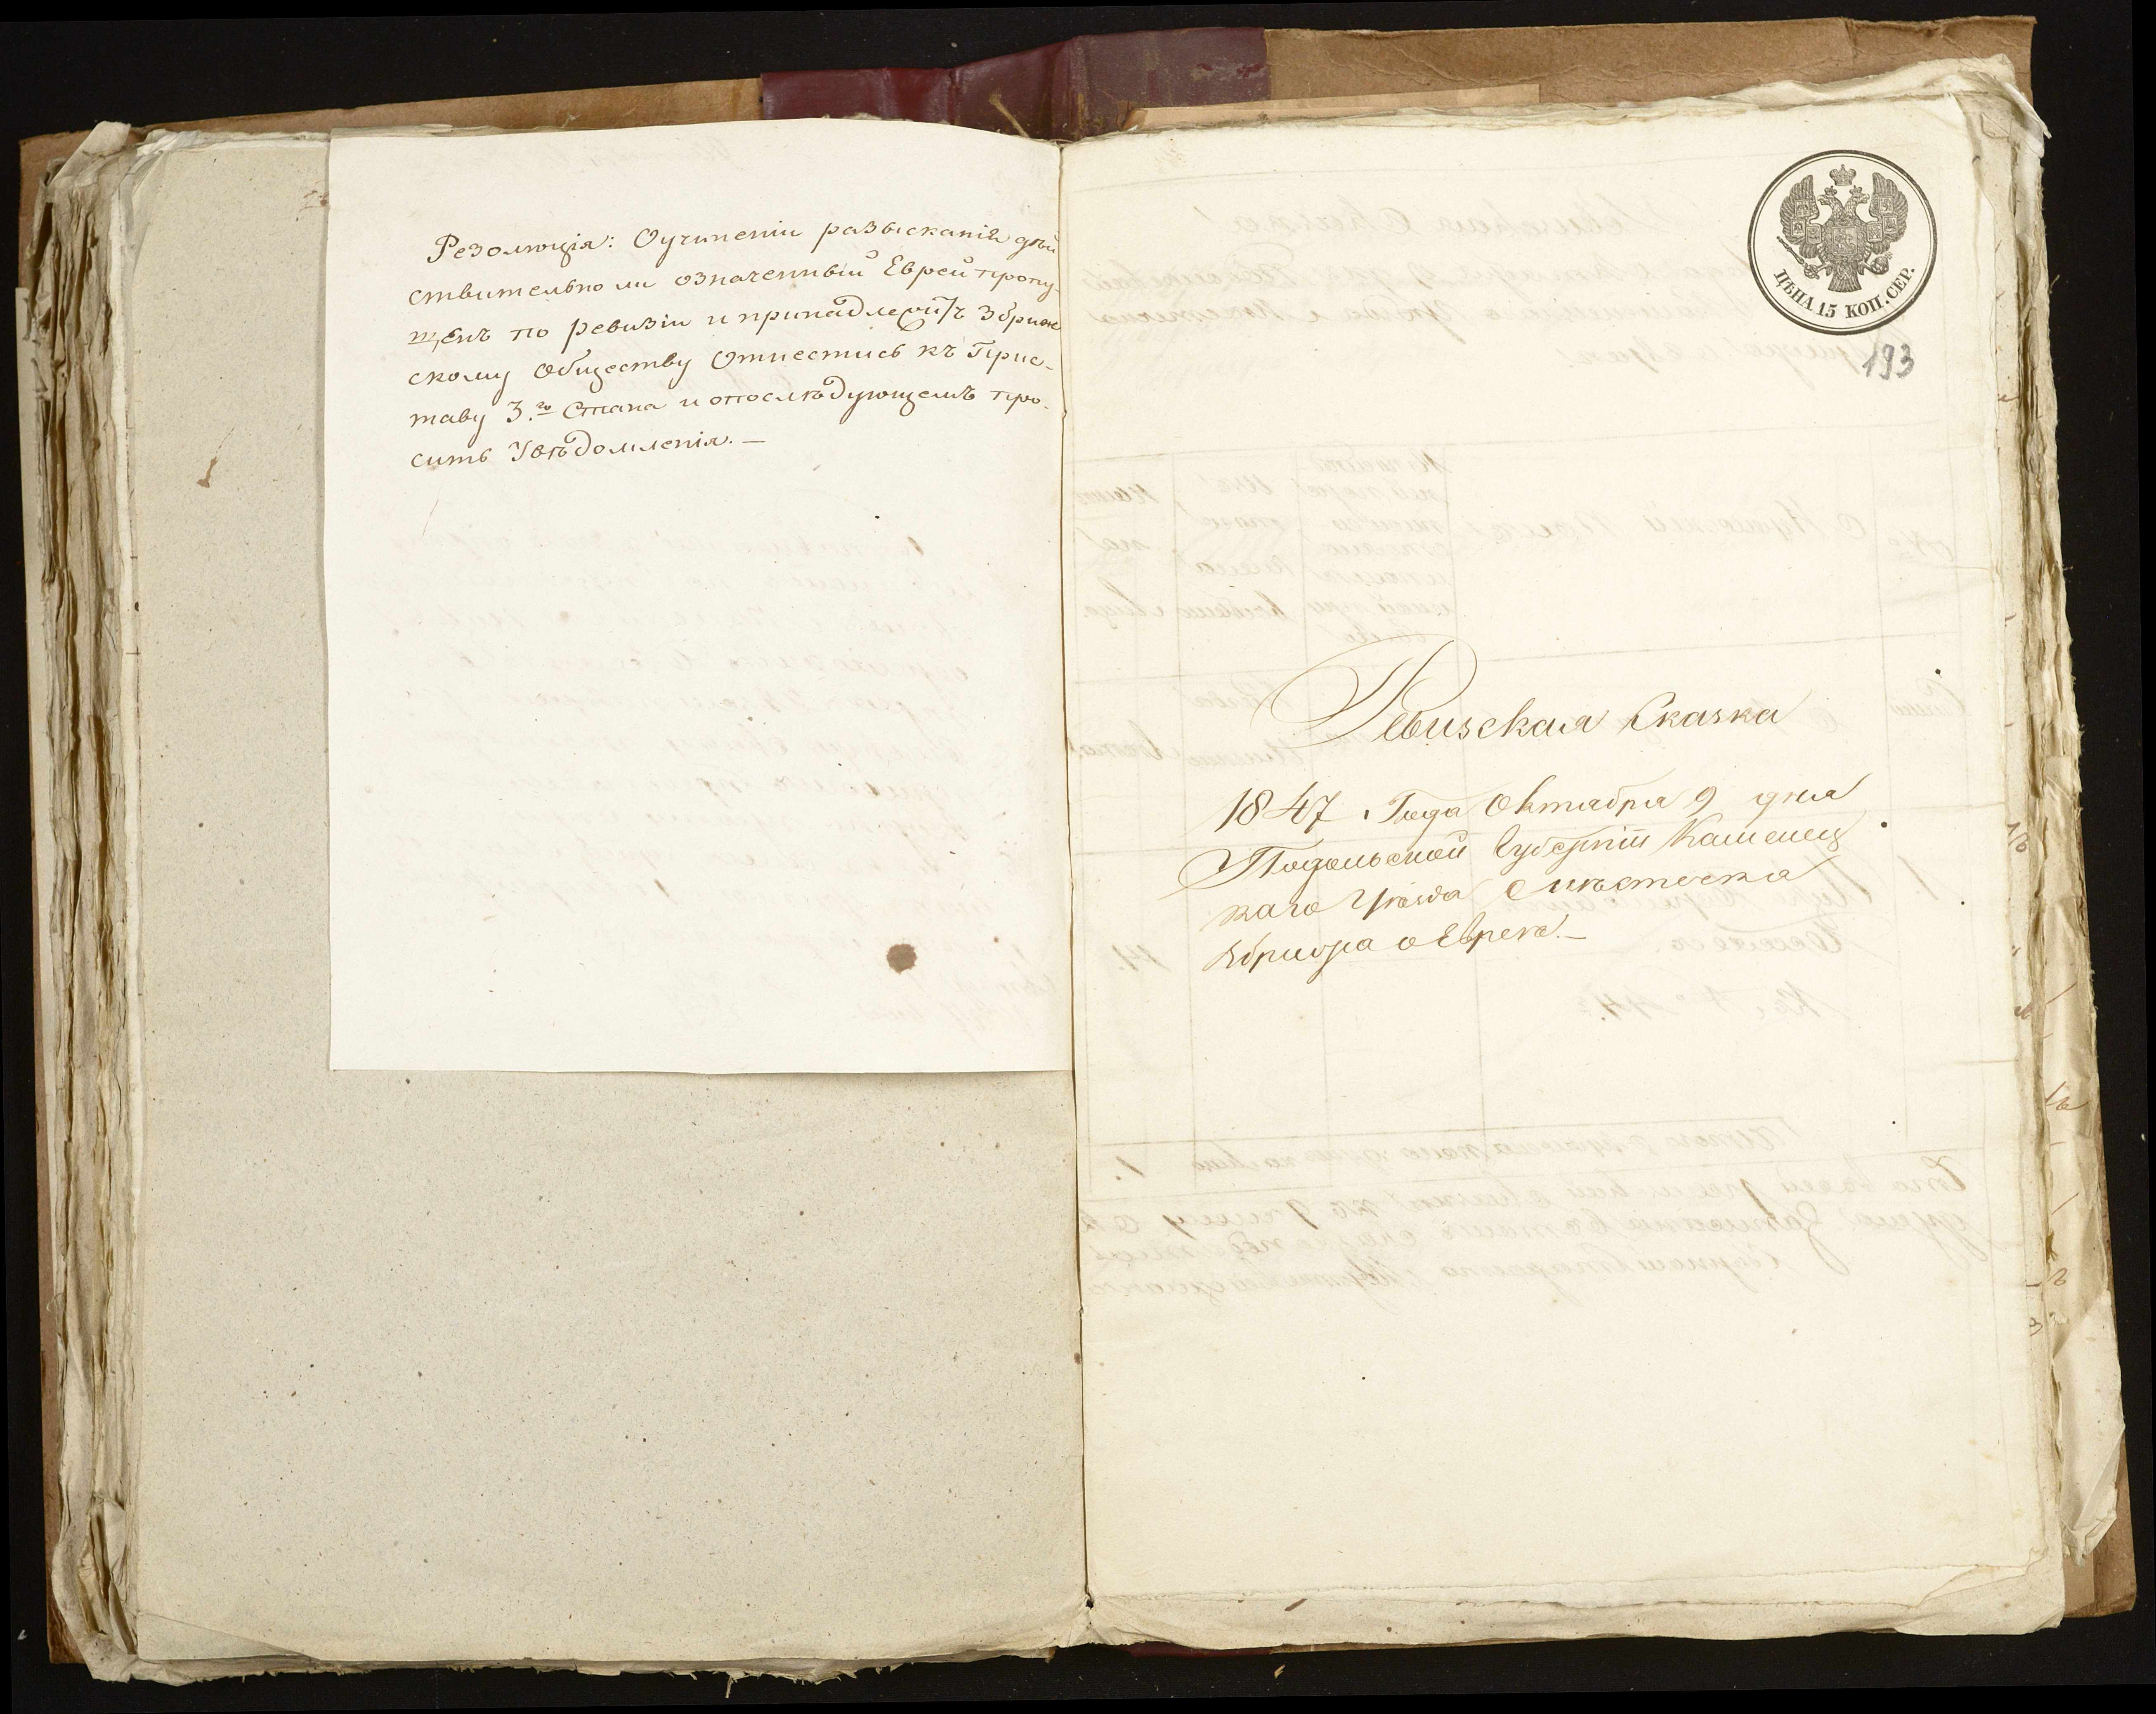 Резолюція: Оучиненіи разысканія дѣй
ствительно ли означенный Еврей пропу-
щенъ по ревизіи и принадлежитъ Збриж
скому Обществу Отнестись къ Прис-
таву 3.го Стана и опослѣдующемъ про-
сить Увѣдомленія. —
ЦѢНА 15 КОП. СЕР.
193
Ревизская Сказка
1847 Года Октября 9 дня
Подольской Губерніи Каменец
каго Уѣзда Мѣстечка
Збрижа о Евреѣ. —